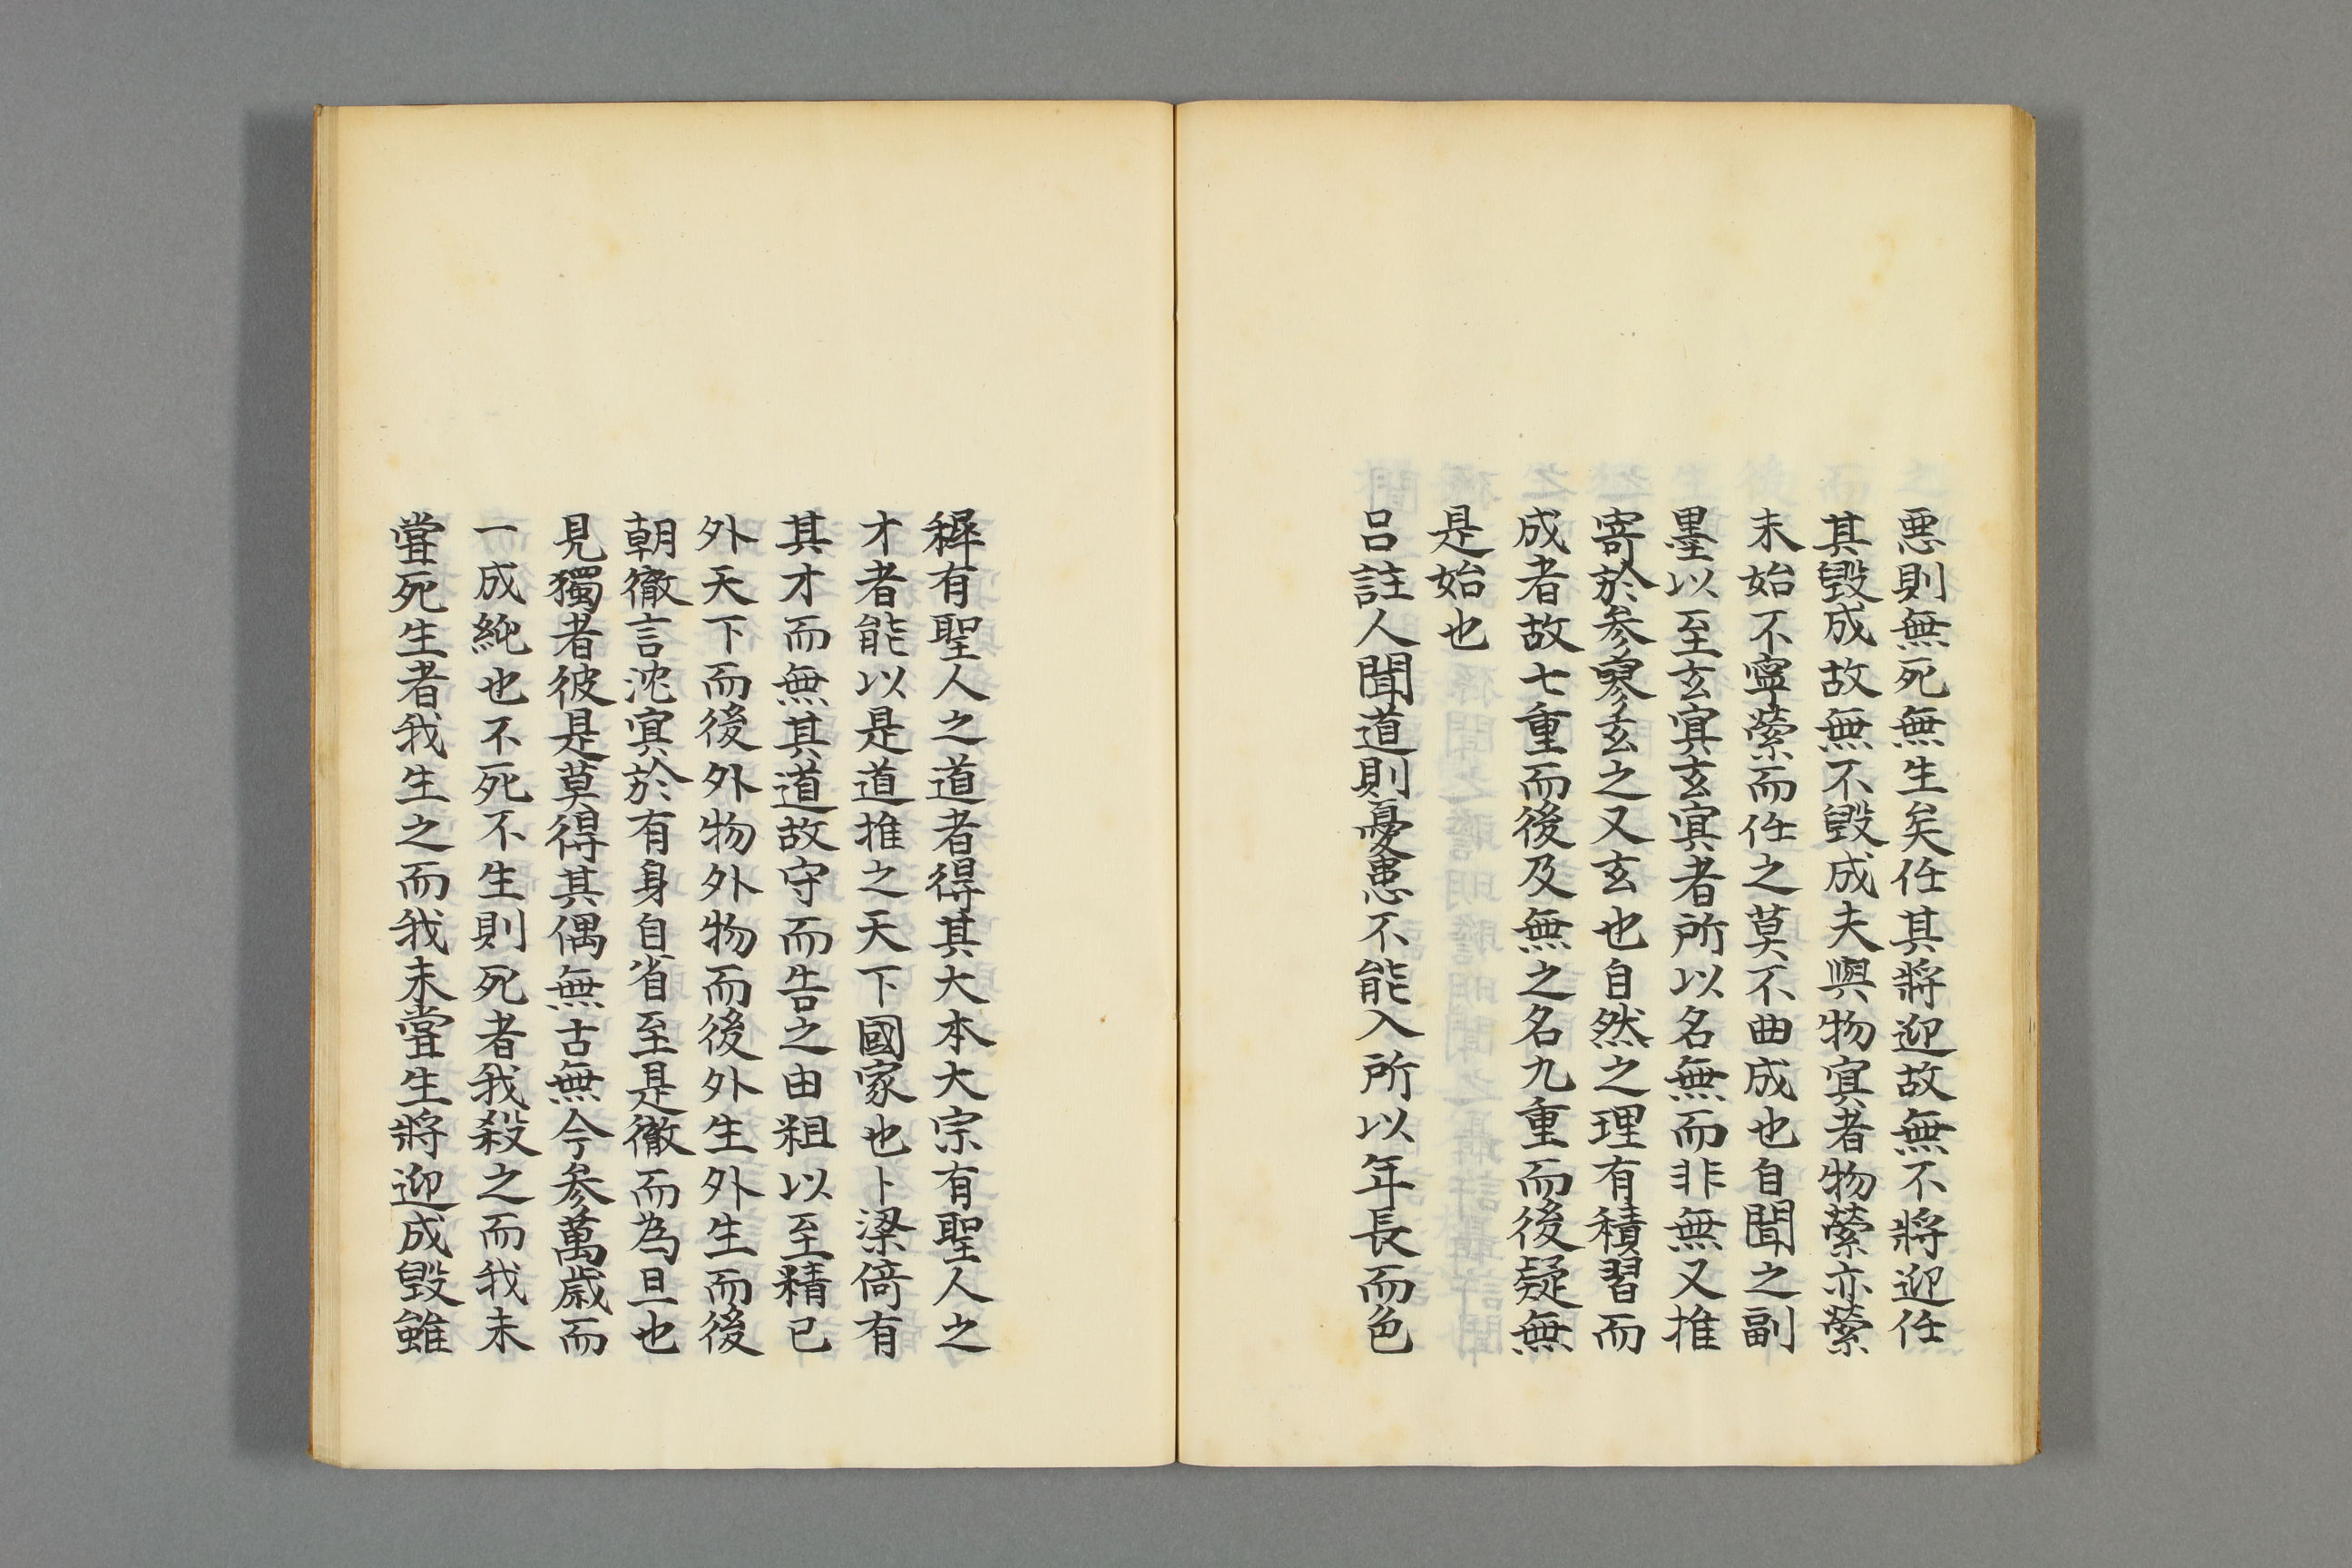 悪則無死無生矣任其將迎故無不將迎任
其毀成故無不毀成夫與物冥者物縈亦縈
未始不寧縈而任之莫不曲成也自聞之副
墨以至玄冥玄冥者所以名無而非無又推
寄於参寥玄之又玄也自然之理有積習而
成者故七重而後及無之名九重而後疑無
是始也
呂註人聞道則憂患不能入所以年長而色
穉有聖人之道者得其大本大宗有聖人之
才者能以是道推之天下國家也卜梁倚有
其才而無其道故守而告之由粗以至精已
外天下而後外物外物而後外生外生而後
朝徹言沈冥於有身自省至是徹而為旦也
見獨者彼是莫得其偶無古無今参萬歲而
一成純也不死不生則死者我殺之而我未
甞死生者我生之而我未甞生將迎成毀雖